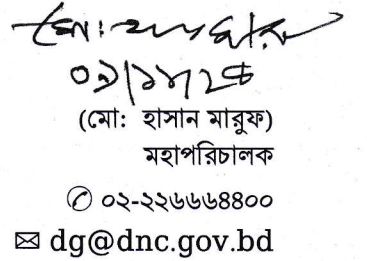 (মো: হাসান মারুফ)
মহাপরিচালক
✆ ০২-২২৬৬৬৪৪০০
✉ dg@dnc.gov.bd